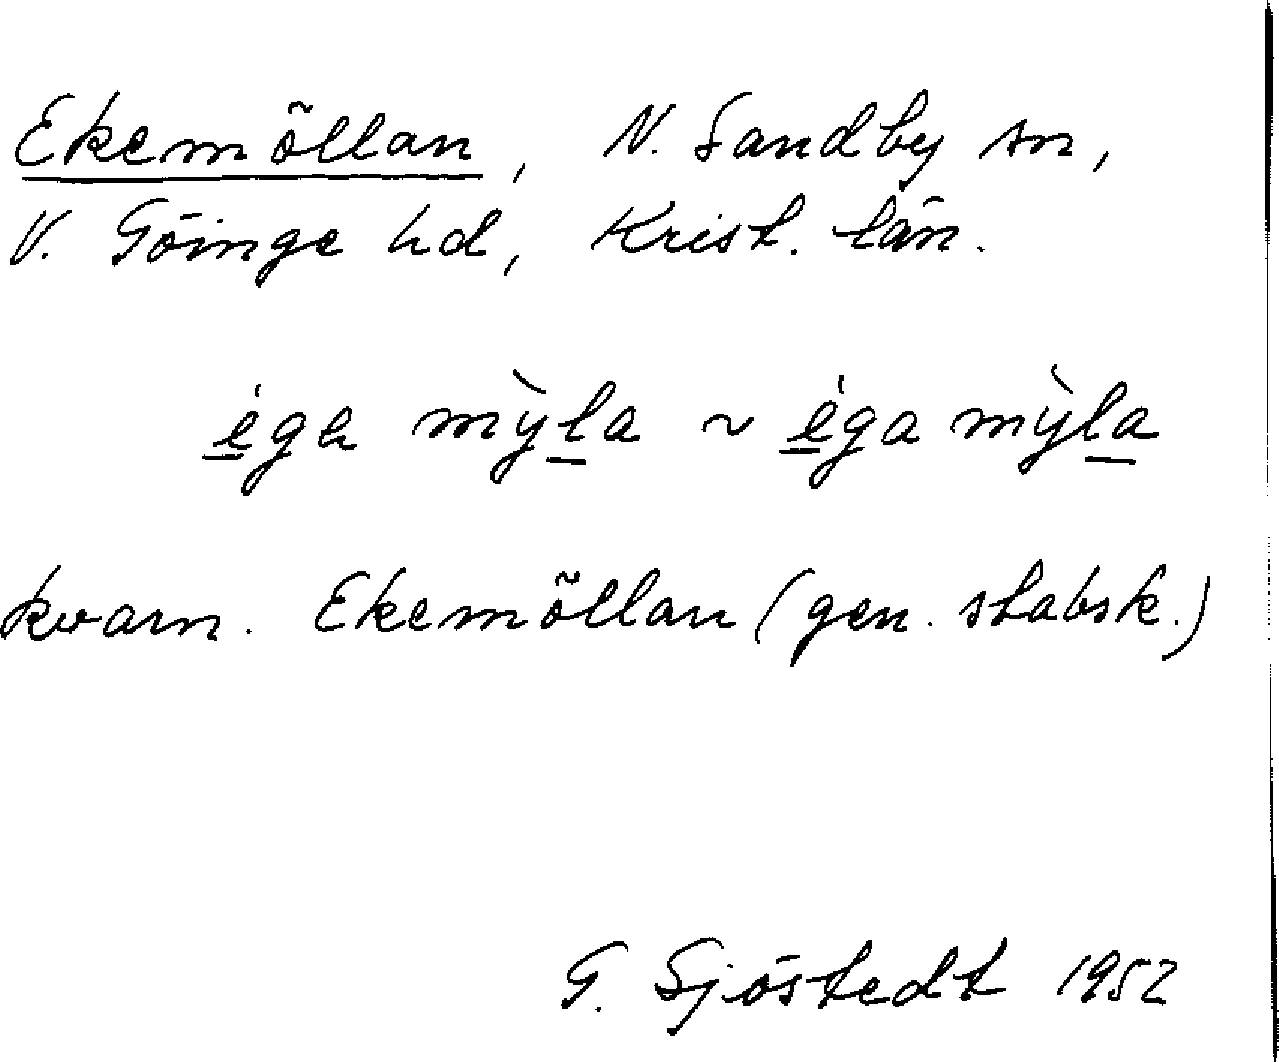 Ekemöllan, N. Sandby sn,
V. Göinge hd, Krist. län.
éga mỳla ~ éga mỳla
kvarn. Ekemöllan (gen. stabsk.)
G. Sjöstedt 1952